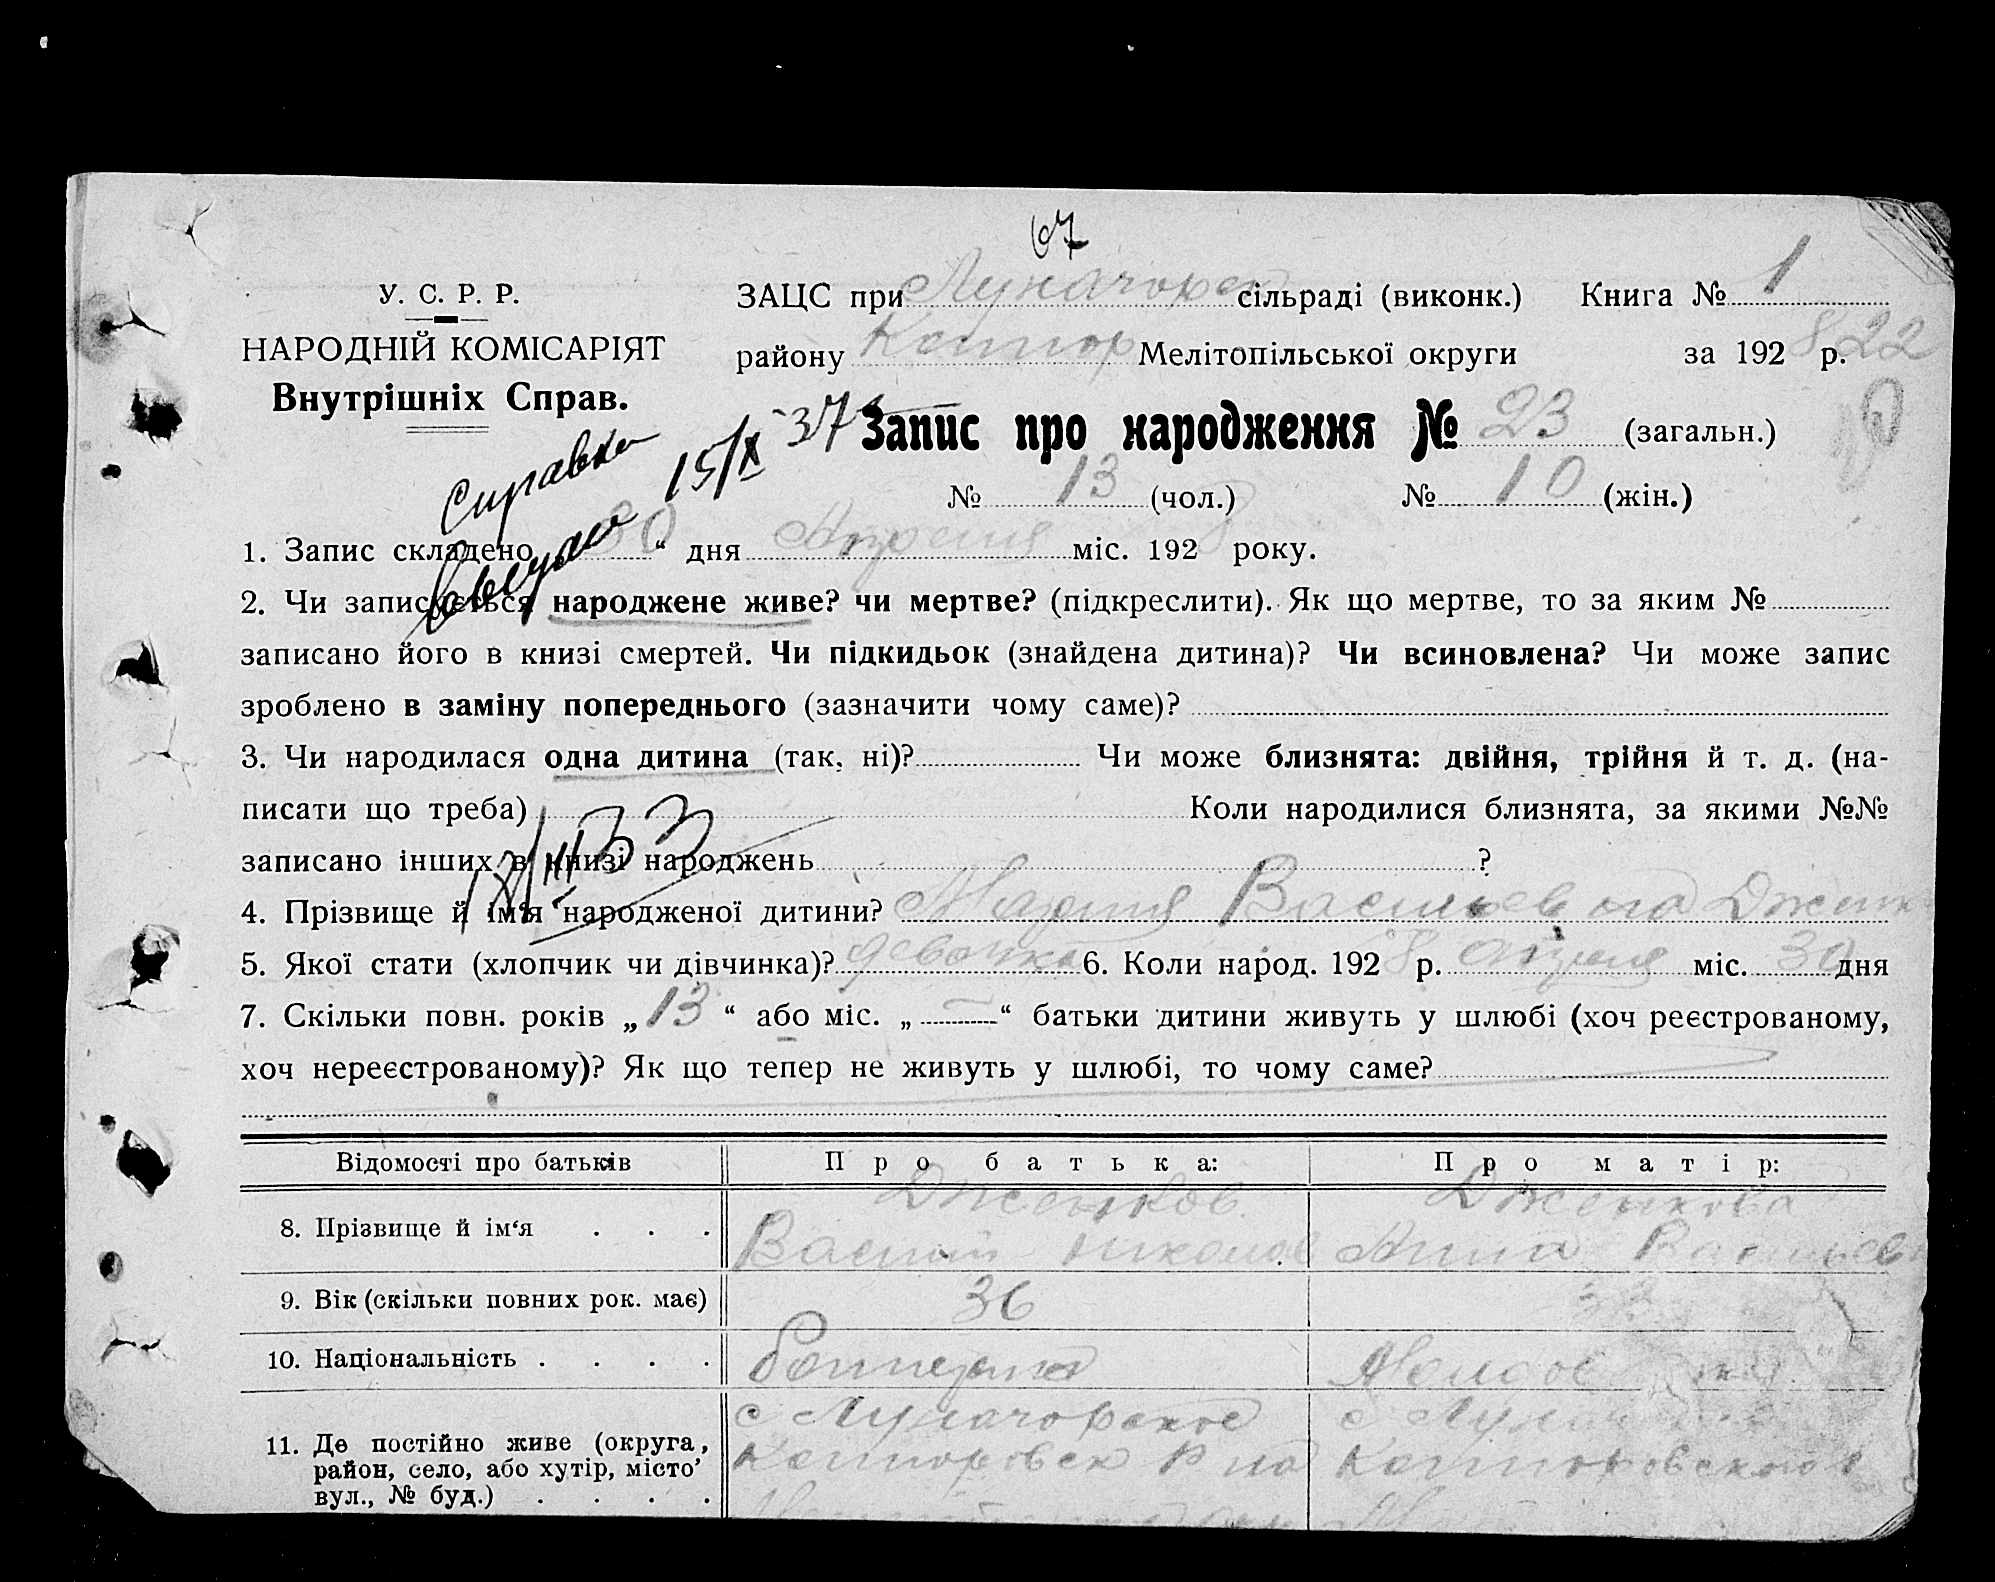 67
У. С. Р. Р.
НАРОДНІЙ КОМІСАРІЯТ
Внутрішніх Справ.
ЗАЦС при Луначорск сільраді (виконк.) Книга № 1
району Мелітопільської округи за 192 8 р. 22
Справка
выдана 15/X-37
Запис про народження № 23 (загальн.)
№ 13 (чол.) № 10 (жін.)
1. Запис складено 30 “ дня Апреля міс. 192 8 року.
2. Чи записується народжене живе? чи мертве? (підкреслити). Як що мертве, то за яким №
записано його в книзі смертей. Чи підкидьок (знайдена дитина)? Чи всиновлена? Чи може запис
зроблено в заміну попереднього (зазначити чому саме)?
3. Чи народилася одна дитина (так, ні)? Чи може близнята: двійня, трійня й т. д. (на-
писати що треба) Коли народилися близнята, за якими №№
записано інших в книзі народжень ?
4. Прізвище й ім'я народженої дитини? Мария Васильевна Дженк
5. Якої стати (хлопчик чи дівчинка)? девочка 6. Коли народ. 192 8 р. апреля міс. 30 дня
7. Скільки повн. років „ 13 “ або міс. „ — “ батьки дитини живуть у шлюбі (хоч реєстрованому,
хоч нереєстрованому)? Як що тепер не живуть у шлюбі, то чому саме?
Відомості про батьків Про батька: Про матір:
8. Прізвище й ім‘я . . . Дженков Василий Николов Дженкова Анна Васильев
9. Вік (скільки повних рок. має) 36 33
10. Національність . . . .
11. Де постійно живе (округа, с Луначорское
район, село, або хутір, місто’
вул., № буд.) . . . .